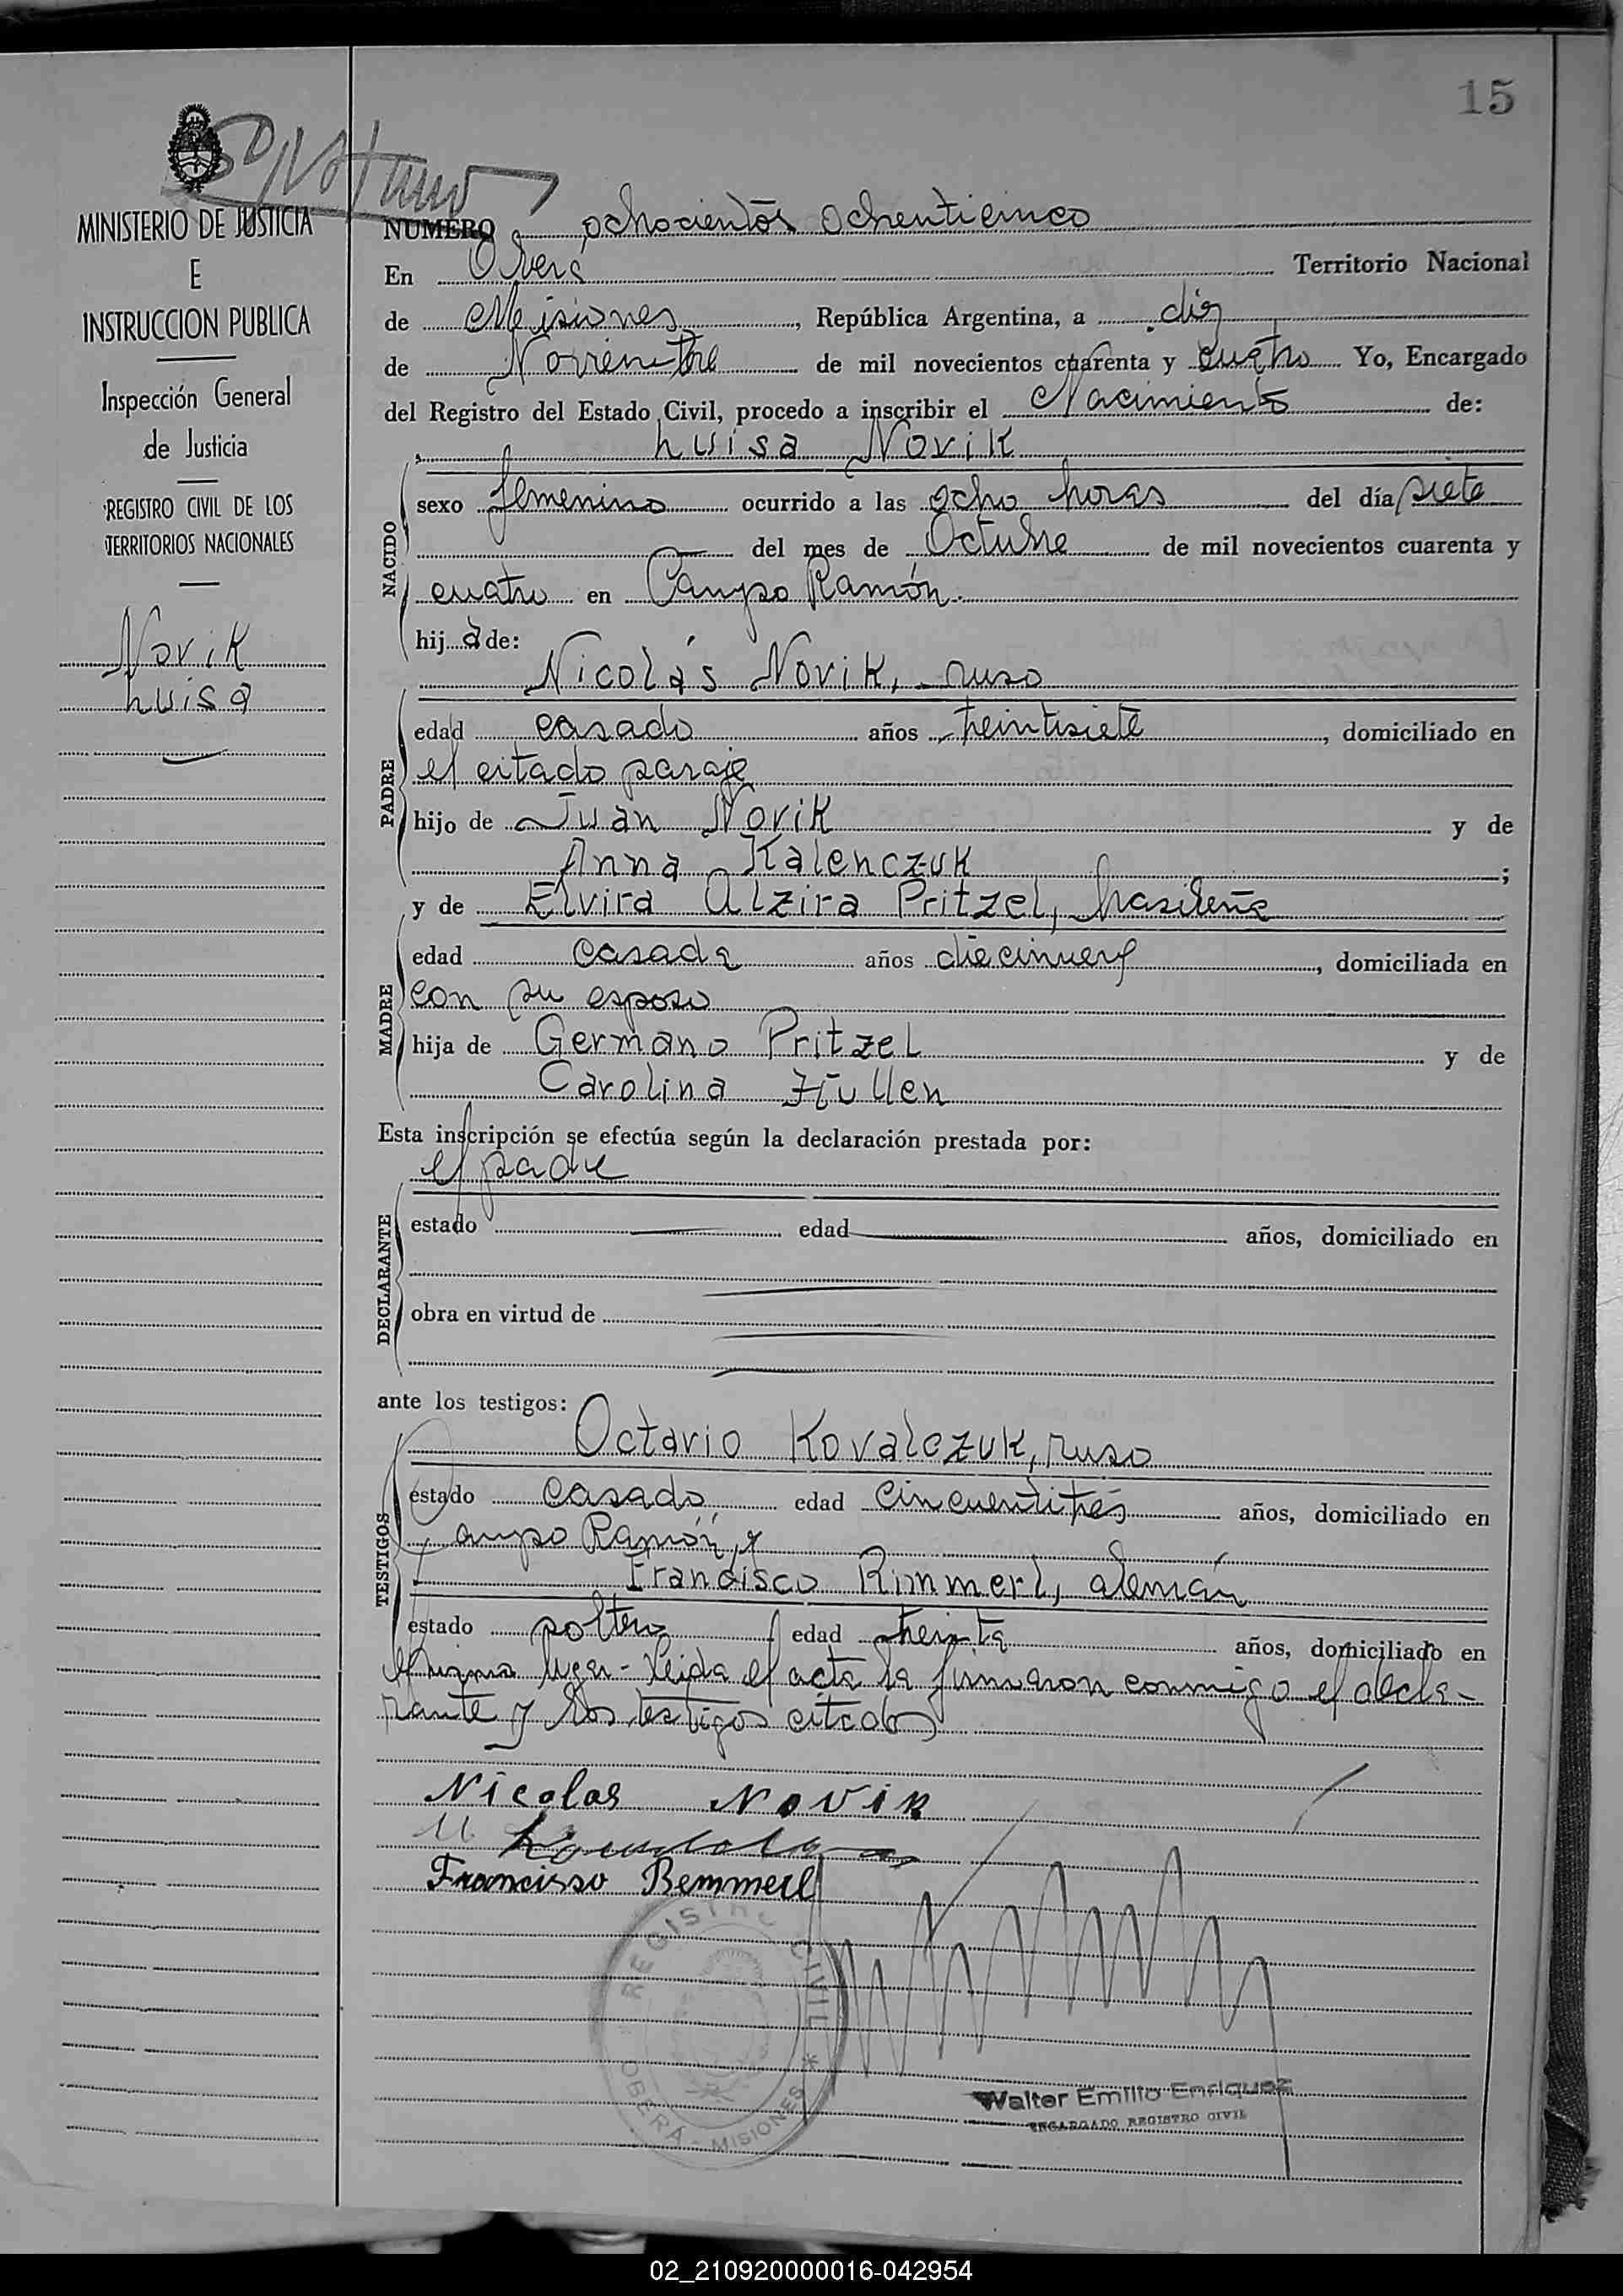 15
MINISTERIO DE JUSTICIA
E
INSTRUCCION PUBLICA
Inspección General
de Justicia
REGISTRO CIVIL DE LOS
TERRITORIOS NACIONALES
Novik
Luisa
NUMERO ochocientos ochenticinco
En Oberá Territorio Nacional
de Misiones, República Argentina, a diez
de Noviembre de mil novecientos cuarenta y cuatro Yo, Encargado
del Registro del Estado Civil, procedo a inscribir el Nacimiento de:
Luisa Novik
NACIDO
sexo femenino ocurrido a las ocho horas del día siete
del mes de Octubre de mil novecientos cuarenta y
cuatro en Campo Ramón.
hij a de:
Nicolás Novik, ruso
PADRE
edad casado años treintisiete, domiciliado en
el citado paraje
hijo de Juan Novik y de
Anna Kalenczuk;
y de Elvira Alzira Pritzel, brasileña
MADRE
edad casada años diecinueve, domiciliada en
con su esposo
hija de Germano Pritzel y de
Carolina Hüllen
Esta inscripción se efectúa según la declaración prestada por:
el padre
DECLARANTE
estado edad años, domiciliado en
obra en virtud de
ante los testigos:
Octavio Kovalczuk, ruso
TESTIGOS
estado casado edad cincuentitrés años, domiciliado en
Campo Ramón, y
Francisco Rimmerl, alemán
estado soltero edad treinta años, domiciliado en
el mismo lugar - Leida el acta la firmaron conmigo el decla-
rante y los testigos citados
Nicolas Novik
Francisso Bemmerl
REGISTRO CIVIL
OBERÁ - MISIONES
Walter Emilio Enriquez
ENCARGADO REGISTRO CIVIL
02_210920000016-042954